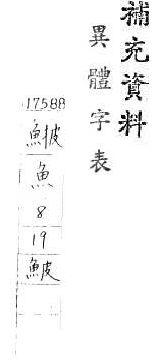 補充資料
異體字表
17588
魚
8
19
鮍